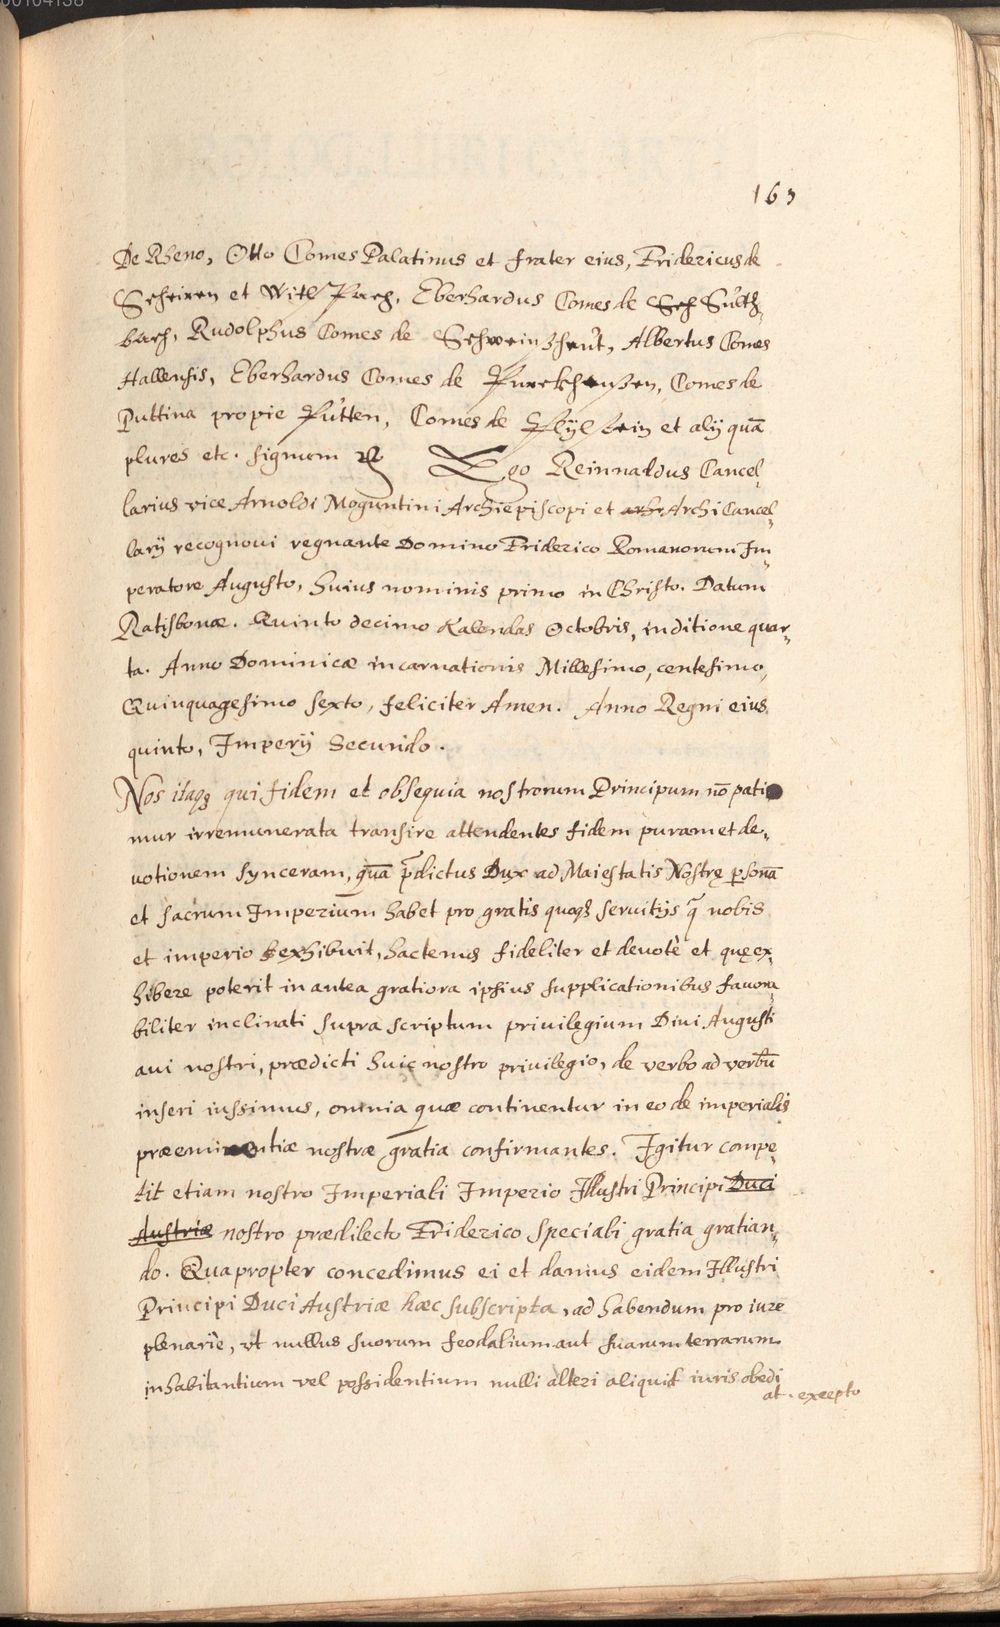 00104138
163
De Rheno, Otto Comes Palatinus et frater eius, Fridericus de
Scheiren et Witl Pach, Eberhardus Comes de Sch Sultz,
bach, Rudolphus Comes de Schweinzhaut, Albertus Comes
Hallensis, Eberhardus Comes de Purckhaußen, Comes de
Puttina propie Pütten, Comes de Peylstein et alij quā
plures etc. signum Ego Reinnaldus Cancel,
larius vice Arnoldi Moguntini Archiepiscopi et arhi Archi Cancel,
larij recognoui regnante Domino Friderico Romanorum Im,
peratore Augusto, huius nominis primo in Christo. Datum
Ratisbonæ. Quinto decimo Kalendas Octobris, inditione quar,
ta. Anno Dominicæ incarnationis Millesimo, centesimo,
Quinquagesimo sexto, feliciter Amen. Anno Regni eius
quinto, Imperij Secundo.
Nos itaqȝ qui fidem et obsequia nostrorum Principum nō pati
mur irremunerata transire attendentes fidem puram et de,
uotionem synceram, quā p̄dictus Dux ad Maiestatis Nostrę psonā
et sacrum Imperium habet pro gratis quoqȝ seruitijs q̄ nobis
et imperio exhibuit, hactenus fideliter et deuotè et quę ex,
hibere poterit in antea gratiora ipsius supplicationibus fauora
biliter inclinati supra scriptum priuilegium Diui Augusti
aui nostri, prædicti huic nostro priuilegio, de verbo ad verbū
inseri iussimus, omnia quæ continentur in eo de imperialis
præeminentiæ nostræ gratia confirmantes. Igitur compe,
tit etiam nostro Imperiali Imperio Illustri Principi Duci
Austriæ nostro prædilecto Friderico speciali gratia gratian,
do. Quapropter concedimus ei et damus eidem Illustri
Principi Duci Austriæ hæc subscripta, ad habendum pro iure
plenarie, vt nullus suorum feodalium aut suarum terrarum
inhabitantium vel possidentium nulli alteri aliquid iuris obedi
at. excepto